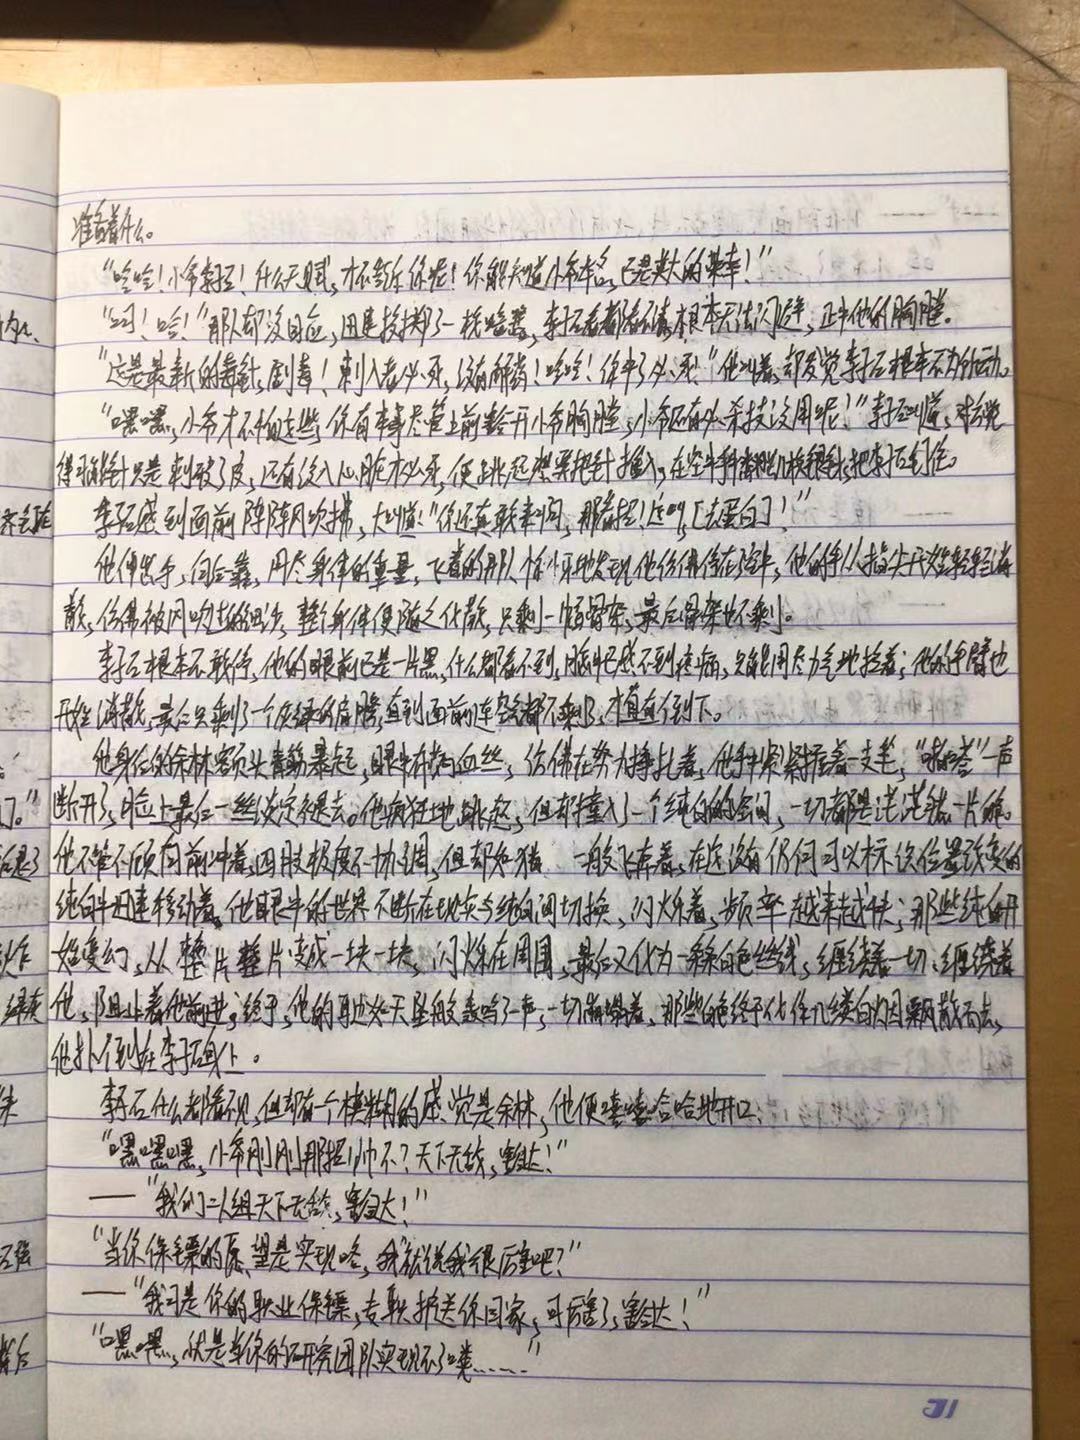 准备着什么。
“哈哈！小爷李石！什么天赋，才不告诉你呢！你能知道小爷本名，已是莫大的荣幸！”
“切！哈！”那人却没回应，迅速投掷了一枚暗器，李石看都看不清，根本无法闪避，正中他的胸膛。
“这是最新的毒针，剧毒！刺入者必死，没有解药！哈哈！你末了必死！”他叫着，却发觉李石根本不为所动。
“嘿嘿，小爷才不怕这些，你有本事尽管上前劈开小爷胸膛，小爷还有必杀技没用呢！”李石叫道，对方觉
得可能针只是刺破了皮，还有没入心脏才必死，便跳起想要把针撞入，在空中
李石感到面前阵阵风吹拂，大叫道：“你还真敢来啊，那看招！这叫，[去蛋白]！”
他伸出手，向后靠，用尽身体的重量，飞着的那人惊讶地发现他仿佛停在空中，他的手从指尖开始轻轻消
散，仿佛被风吹起的细沙，整个身体便随之化散，只剩一幅骨架，最后骨架也不剩。
李石根本不敢停，他的眼前已是一片黑，什么都看不到，胸口已感不到疼痛，只能用尽力气地抬着；他的手臂也
开始消散，最后只剩了一个灰绿的肩膀，直到面前连骨头都不剩，才直直倒下。
他身后的余林额头青筋暴起，眼中布满血丝，仿佛在努力挣扎着，他手中紧紧握着一支笔，“啪嗒”一声
断开了，脸上最后一丝淡定褪去。他疯狂地跳起，但却撞入了一个纯白的空间，一切都是茫茫然一片的。
他不管不顾向前冲着，四肢极度不协调，但却如猫 一般飞奔着，在这没有任何可以标识位置改变的
纯白中迅速移动着。他眼中的世界不断在现实与纯白间切换、闪烁着，频率越来越快；那些纯白开
始变幻，从整片整片变成一块一块，闪烁在周围，最后又化为一条条白色丝线，缠绕着一切，缠绕着
他，阻止着他前进；终于，他的耳边如天坠般轰鸣了一声，一切崩塌着，那些白色终于化作几缕白烟飘散而去，
他扑倒在李石身上。
李石什么都看不见，但却有一个模糊的感觉是余林，他便嘻嘻哈哈地开口：
“嘿嘿嘿，小爷刚刚那招帅不？天下无敌，害达！”
——“我们二人组天下无敌，害达！”
“当你保镖的愿望是实现咯，我就说我很厉害吧？”
——“我可是你的职业保镖，专职护送你回家，可厉害了，害达！”
“嘿嘿，就是当你的研究团队实现不了喽……”
31